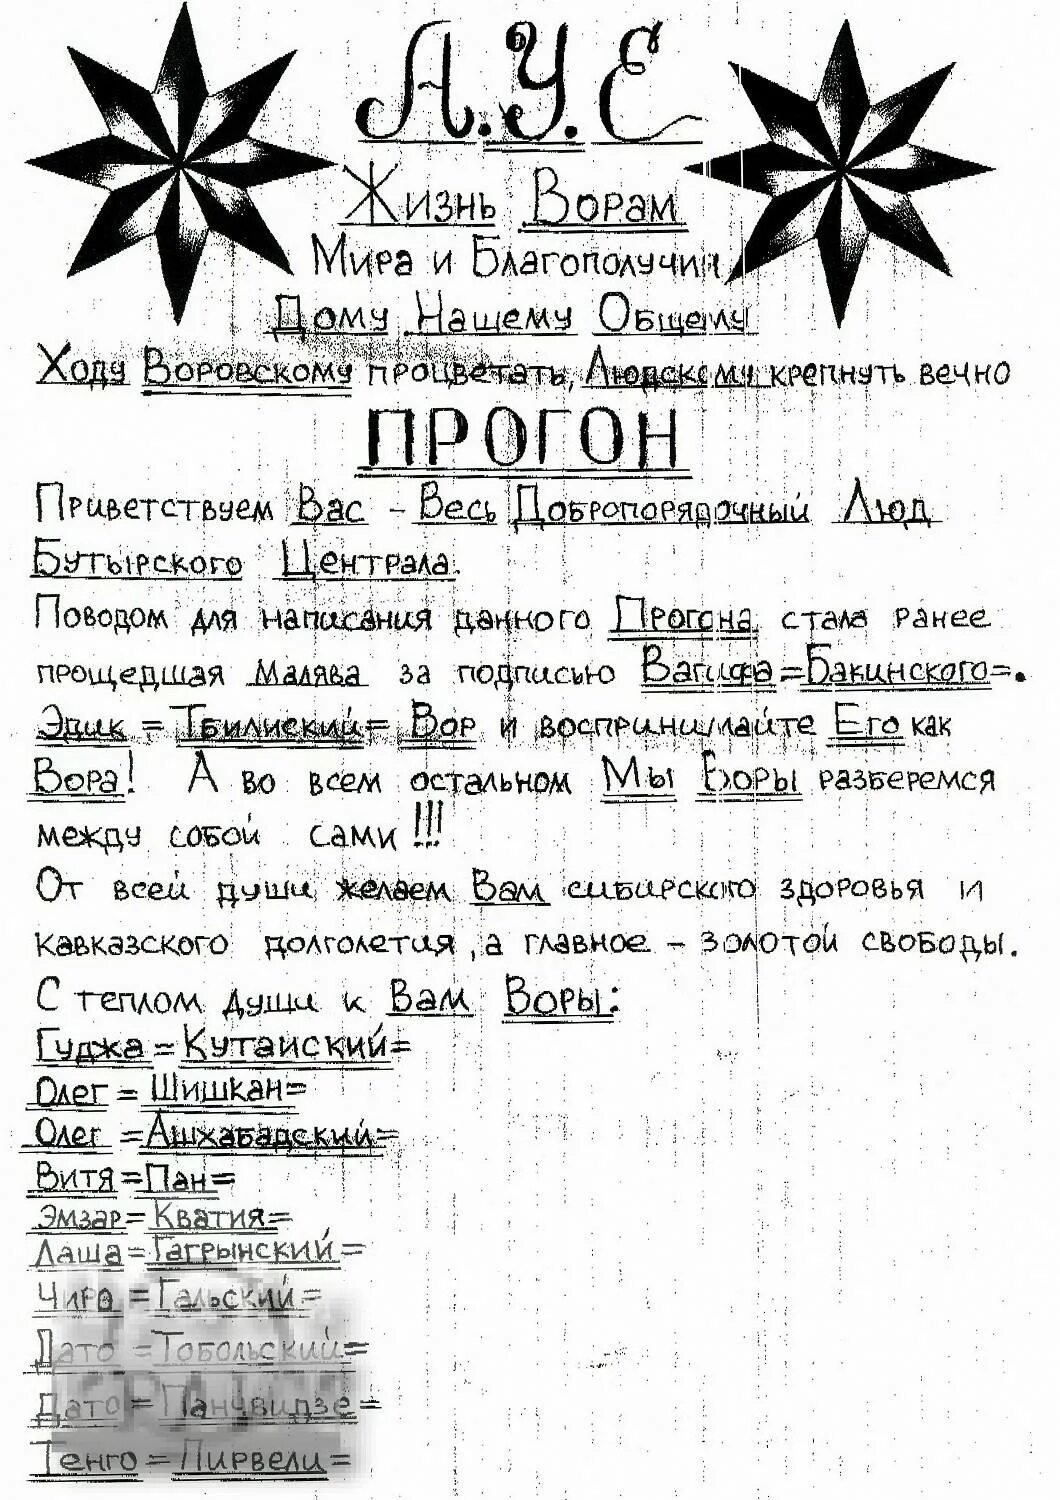 А.У.Е
Жизнь Ворам
Мира и Благополучия
Дому Нашему Общему
Ходу Воровскому процветать, Людскому крепнуть вечно
ПРОГОН
Приветствуем Вас - Весь Добропорядочный Люд
Бутырского Централа.
Поводом для написания данного Прогона стала ранее
прошедшая Малява за подписью Вагифа =Бакинского=.
Эдик = Тбилиский= Вор и воспринимайте Его как
Вора! А во всем остальном Мы Воры разберемся
между собой сами!!!
От всей души желаем Вам сибирского здоровья и
кавказского долголетия, а главное - золотой свободы.
С теплом души к Вам Воры:
Гуджа =Кутаиский=
Олег = Шишкан=
Олег =Ашхабадский=
Витя =Пан=
Эмзар= Кватия=
Лаша =Гагрынский=
Чиро =Гальский=
Дато =Тобольский=
Дато= Панчвидзе=
Тенго = Пирвели=